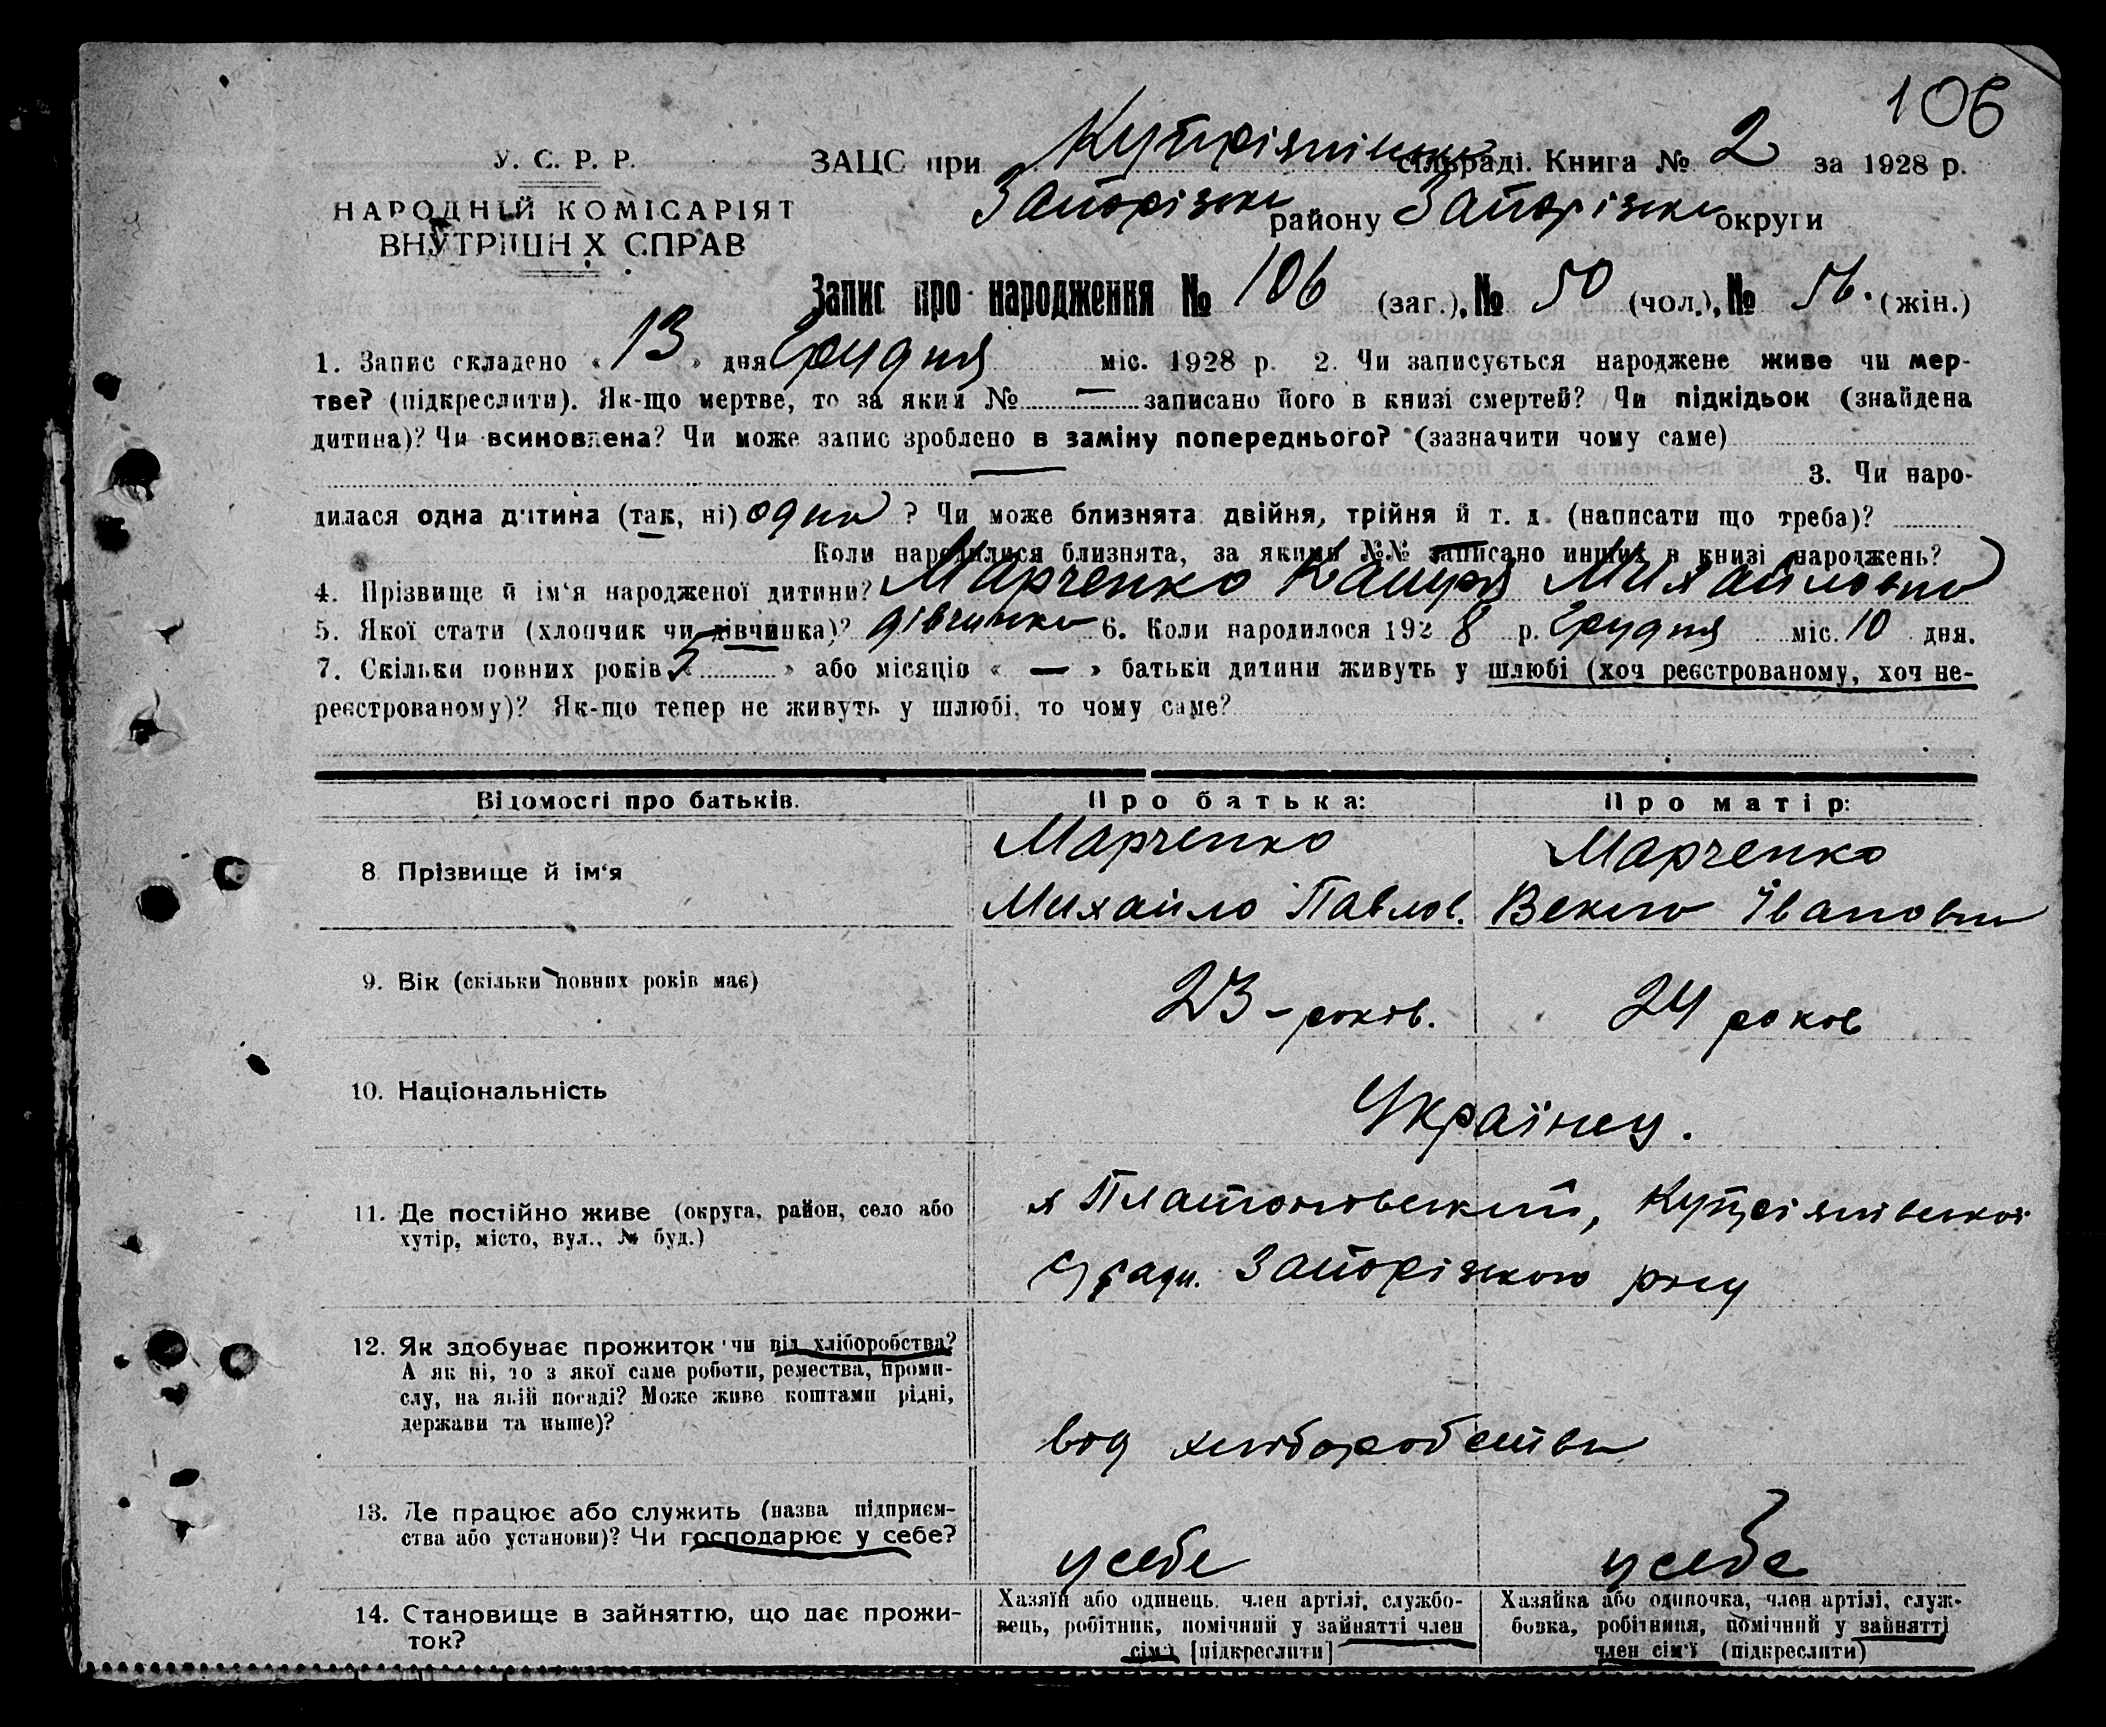 106
У. С. Р. Р.
НАРОДНІЙ КОМІСАРІЯТ
ВНУТРІШНІХ СПРАВ
ЗАЦС при Купріянівські сільраді. Книга № 2 за 1928 р.
Запорізьк району Запорізьк округи
Запис про народження № 106 (заг.), № 50 (чол.), № 56. (жін.)
1. Запис складено « 13 » дня Грудня міс. 1928 р. 2. Чи записується народжене живе чи мер-
тве? (підкреслити). Як-що мертве, то за яким № — записано його в книзі смертей? Чи підкідьок (знайдена
дитина)? Чи всиновлена? Чи може запис зроблено в заміну попереднього? (зазначити чому саме)
— 3. Чи наро-
дилася одна дитина (так, ні) одна ? Чи може близнята двійня, трійня й т. д. (написати що треба)?
Коли народилися близнята, за якими №№ записано инших в книзі народжень?
4. Прізвище й ім'я народженої дитини? Марченко Михайловна
5. Якої стати (хлопчик чи дівчинка)? дівчинка 6. Коли народилося 1928 р. Грудня міс. 10 дня.
7. Скільки повних років « 5 » або місяців « — » батьки дитини живуть у шлюбі (хоч реєстрованому, хоч не-
реєстрованому)? Як-що тепер не живуть у шлюбі, то чому саме?
Відомості про батьків. Про батька: Про матір:
8. Прізвище й ім'я Марченко Михайло Павлов. Марченко Івановна
9. Вік (скільки повних років має) 23 – років. 24 роков
10. Національність Українец.
11. Де постійно живе (округа, район, село або
хутір, місто, вул., № буд.)
х Платоновський, Купріянівської
с/ради. Запорізького р-ну
12. Як здобуває прожиток чи від хліборобства?
А як ні, то з якої саме роботи, ремества, проми-
слу, на якій посаді? Може живе коштами рідні,
держави та инше)?
вод хліборобства
13. Де працює або служить (назва підприєм-
ства або установи)? Чи господарює у себе?
у себе у себе
14. Становище в зайняттю, що дає прожи-
ток?
Хазяїн або одинець, член артілі, службо-
вець, робітник, помічний у зайнятті член
сім'ї [підкреслити]
Хазяйка або одиночка, член артілі, служ-
бовка, робітниця, помічний у зайнятті
член сім'ї (підкреслити)